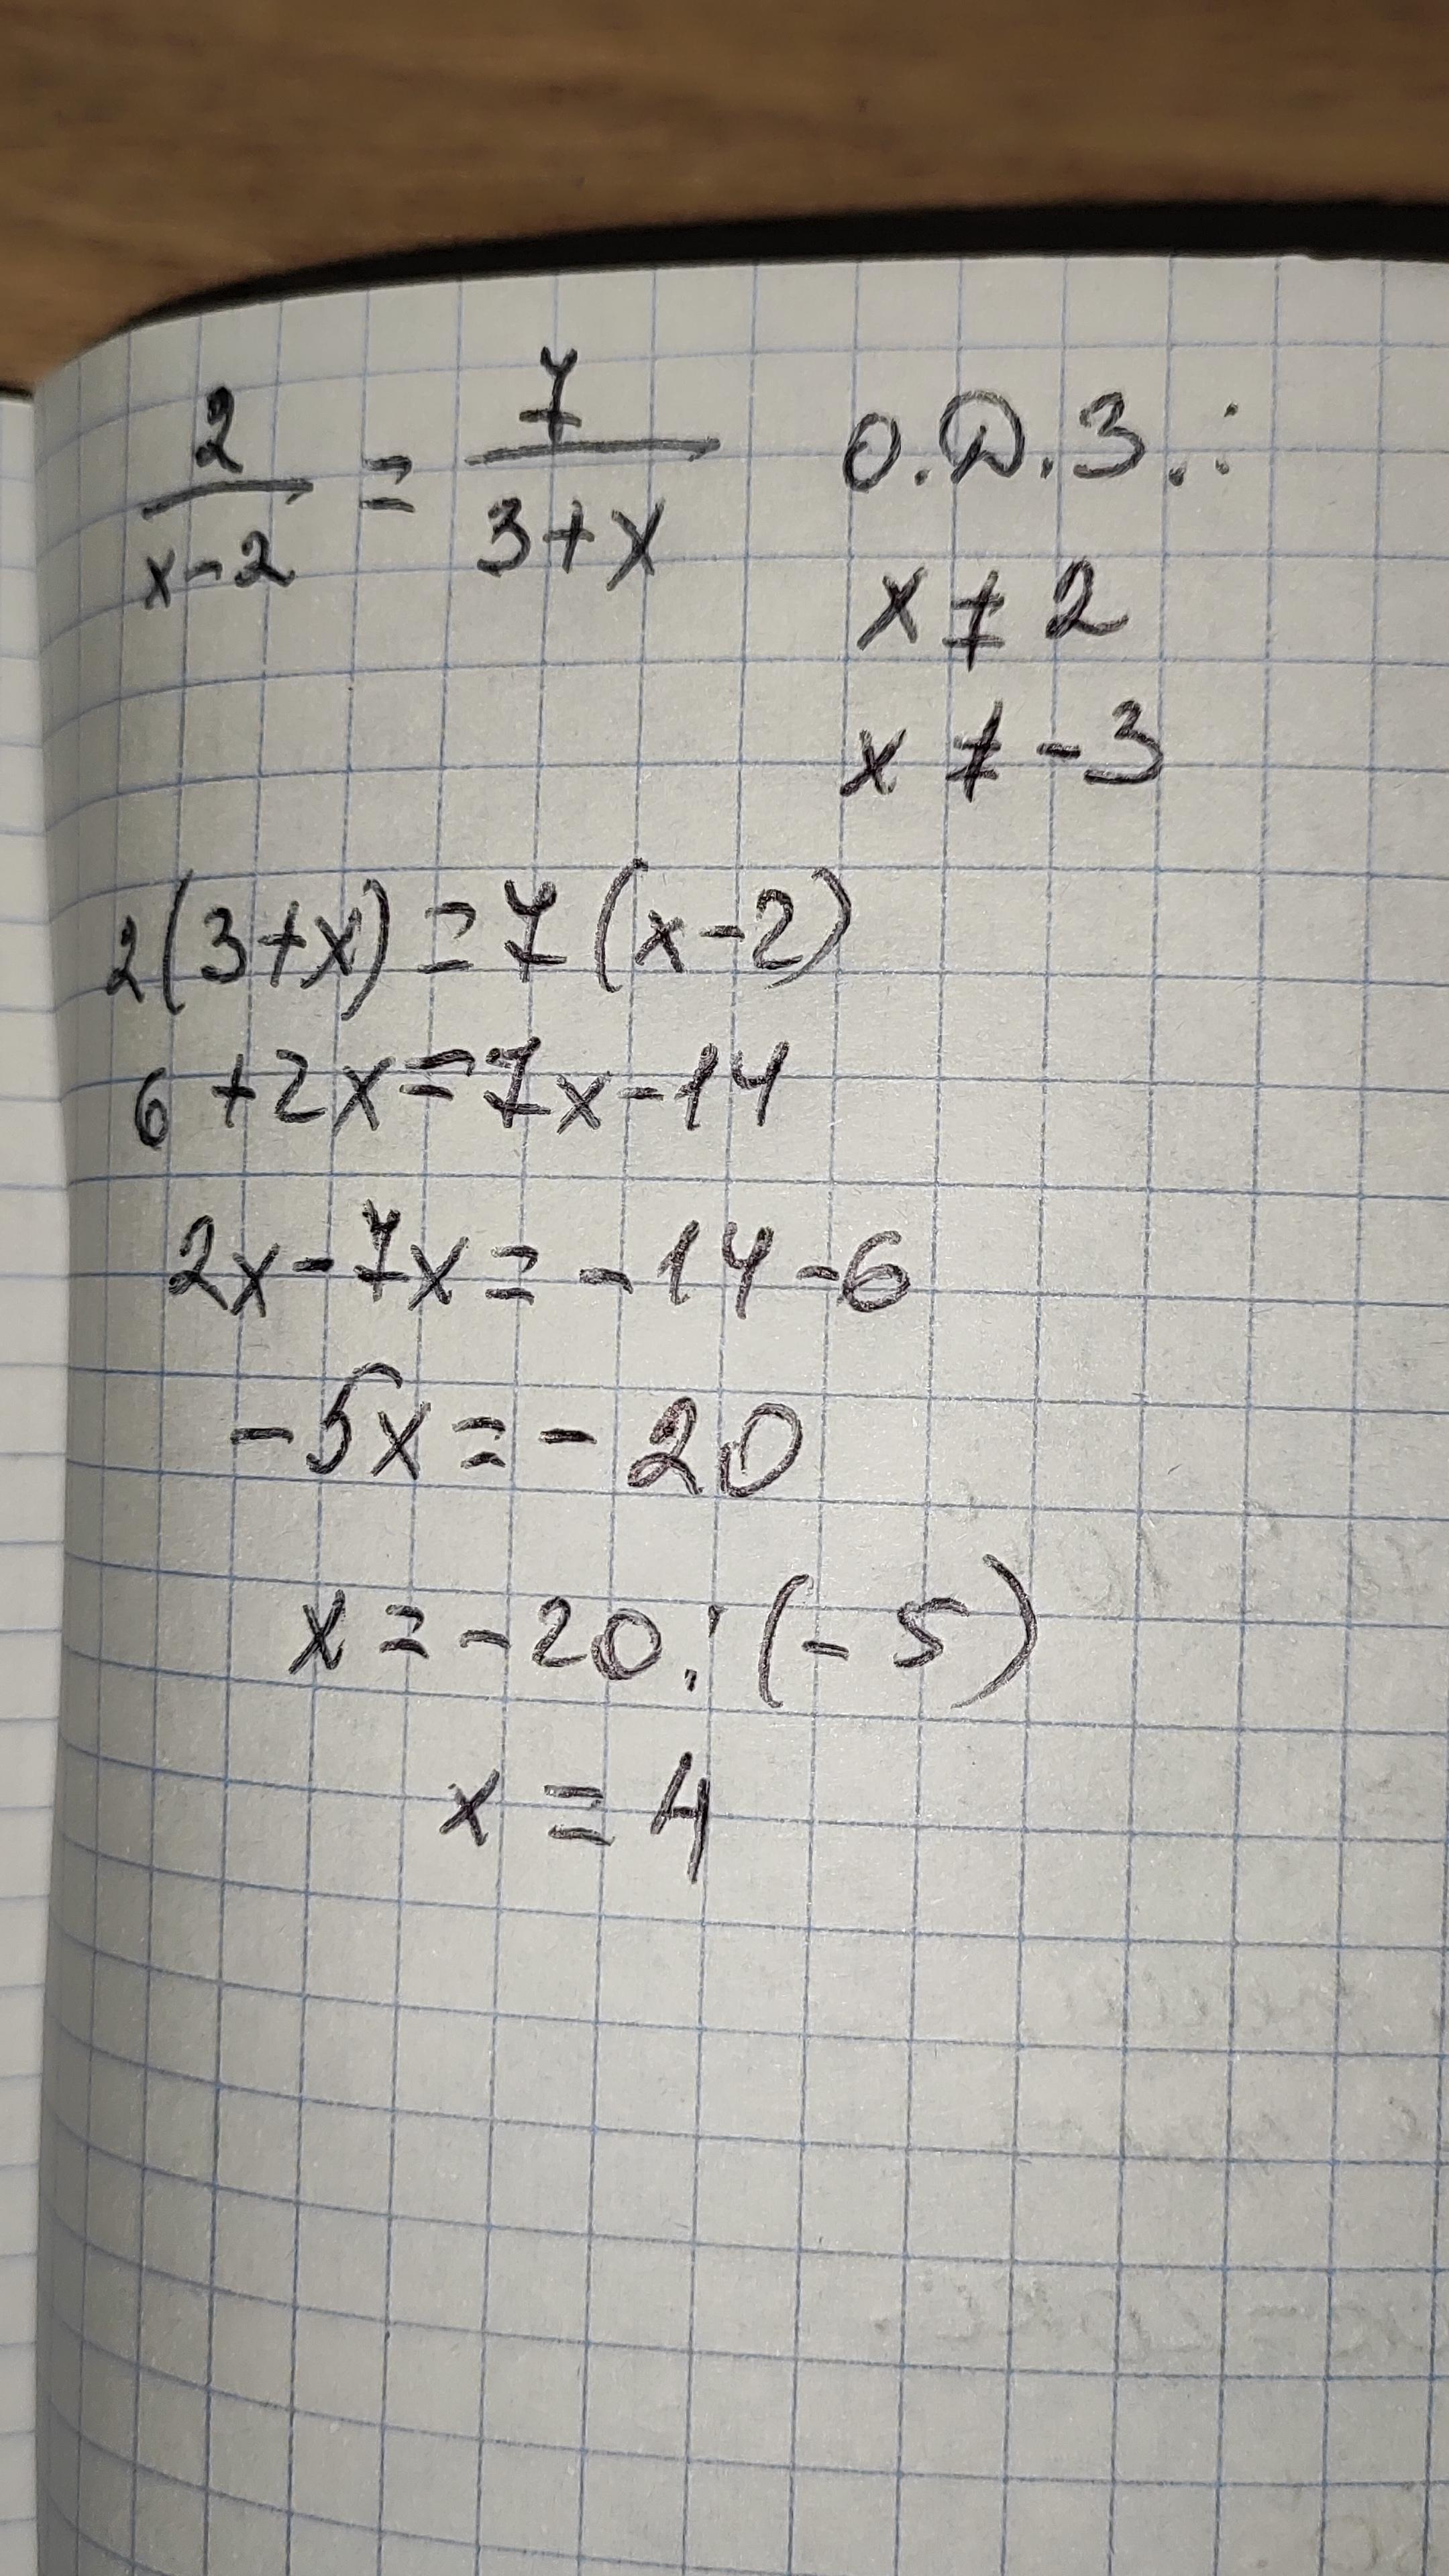 2/(x-2) = 7/(3+x)
О.Д.З.:
x ≠ 2
x ≠ -3
2(3+x)=7(x-2)
6+2x=7x-14
2x-7x=-14-6
-5x=-20
x=-20:(-5)
x=4